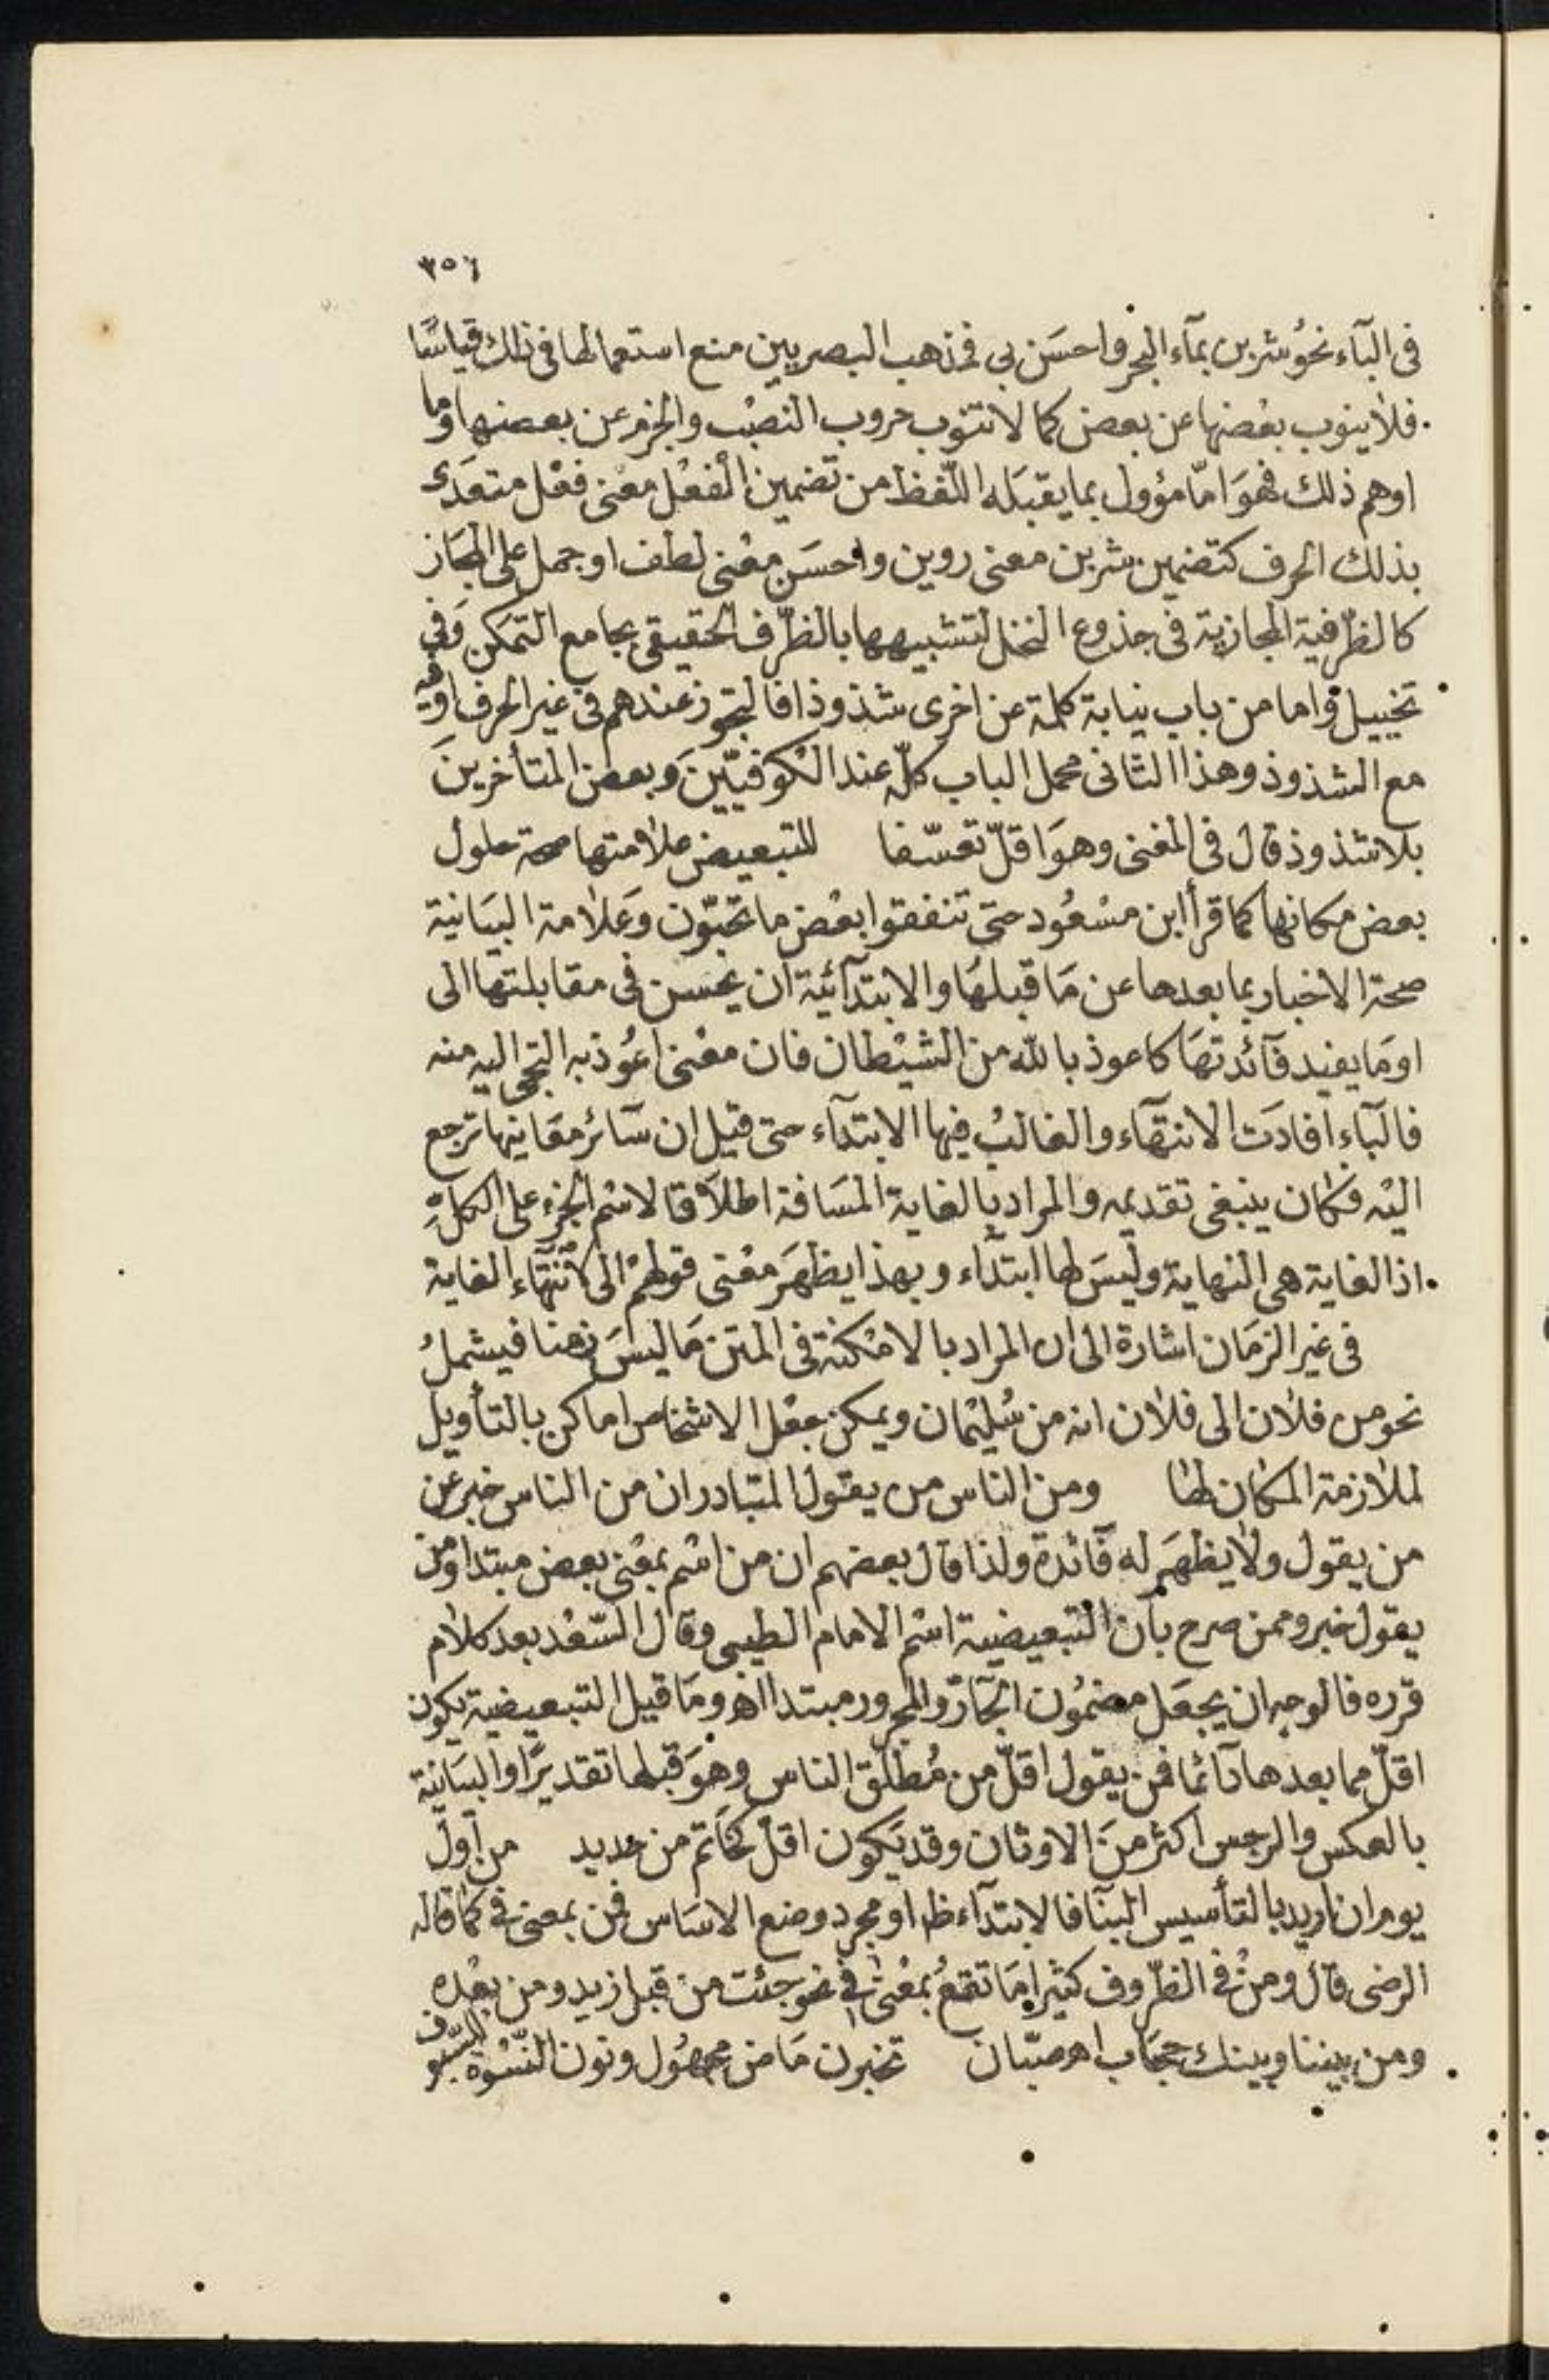 ٣٥٦
فى البآء نحو شربن بمآء البحر واحسَن بى فمذهب البصريين منع استعمالها فى ذلك قياسًا
فلا ينوب بعْضها عن بعض كما لا تنوب حروب النصْب والجزم عن بعضها وما
اوهم ذلك فهوَ امّا مؤول بما يقبَله اللّفظ من تضمين الفعْل معْنى فعْل متعَدى
بذلك الحرف كتضمين شربن معنى روين واحسَن معْنى لطف او حمل على المجَاز
كالظّرفية المجازية فى جذوع النخل لتشبيهها بالظّرف الحقيقى بجامع التمكن وَفى
تخييل واما من باب نيابة كلمة عن اخرى شذوذا فالتجوز عندهم فى غير الحرف او فيه
مع الشذوذ وهذا الثانى محمل الباب كلّه عند الكوفيّينَ وبعض المتأخرينَ
بلا شذوذ قال فى المغنى وهوَ اقلّ تعسّفا للتبعيض علامتها صحة حلول
بعض مكانها كما قرأ ابن مسْعُود حتى تنفقوا بعْض ما تحبّون وعَلامة البيَانية
صحة الاخبار بما بعدها عن مَا قبلهَا والابتدآئية ان يحسن فى مقابلتها الى
او مَا يفيد فآئدتهَا كاعوذ بالله من الشيْطان فان معْنى اعُوذ به التجى اليه منه
فالبآء افادَت الانتهآء والغالبُ فيها الابتدآء حتى قيل ان سَآئر معَانيها ترجع
اليْه فكان ينبغى تقديمه والمراد بالغاية المسَافة اطلاقا لاسْم الجزء على الكلّ
اذ الغاية هى النهاية وليسَ لها ابتدآء وبهذا يظهَر معْنى قولهمْ الى لانتهآء الغاية
فى غير الزمَان اشارة الى ان المراد بالامْكنة فى المتن مَا ليسَ زمنا فيشملُ
نحو من فلان الى فلان انه من سُليْمان ويمكن جعْل الاشخاص اماكن بالتأويل
لملازمة المكان لها ومن الناس من يقول المتبادر ان من الناس خبر عن
من يقول ولا يظهَر له فآئدة ولذا قال بعضهم ان من اسْم بمعْنى بعض مبتدا ومن
يقول خبر وممن صرح بان التبعيضية اسْم الامام الطيبى وقال السّعْد بعد كلام
قرره فالوجه ان يجعَل مضمُون الجَآرّ والمجرور مبتدا اھ ومَا قيل التبعيضية يكون
اقلّ مما بعدها دآئما فمن يقول اقلّ من مُطلَق الناس وهوَ قبلها تقديرًا والبيَانية
بالعكس والرجس اكثر منَ الاوثان وقد يَكون اقلّ كخاتم من حديد من اول
يوم ان اريد بالتأسيس البنآ فالابتدآء ظ او مجرد وضع الاسَاس فمن بمعنى فى كما قاله
الرضى قال ومنْ فى الظّروف كثيرا مَا تقعُ بمعْنى فى نحو جئت من قبل زيد ومن بعْده
ومن بيننا وبينك حجَاب اھ صبّان تخبرن مَاض مجهُول ونون النّسْوة للسّيوف